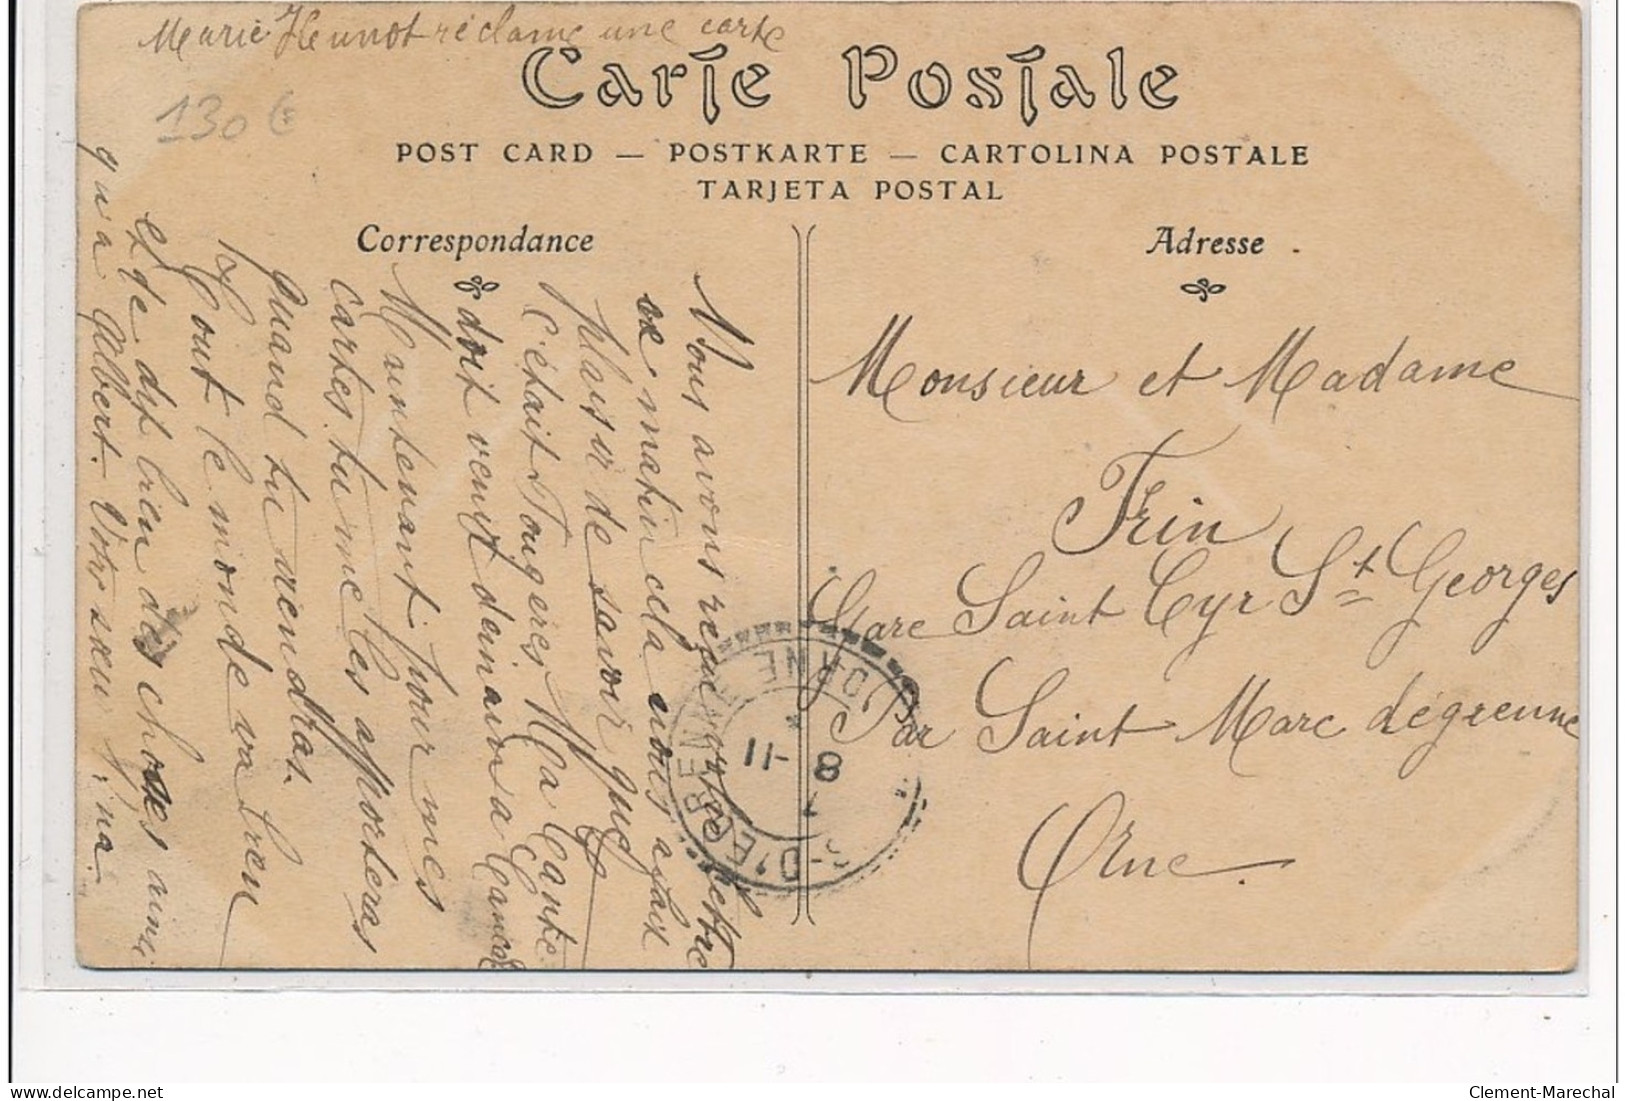 Marie Hunot réclame une carte
Carte Postale
130 €
POST CARD — POSTKARTE — CARTOLINA POSTALE
TARJETA POSTAL
Correspondance
Adresse
Nous avons reçu votre lettre
ce matin cela nous a fait
plaisir de savoir que
c'était Fougères Ma Tante
doit venir demain a Cancal
Maintenant pour mes
cartes tu me les apporteras
quand tu viendras.
Tout le monde va bien
et te dit bien des choses ainsi
qu'a Albert. Votre sœur
Monsieur et Madame
Frin
Gare Saint Cyr St Georges
Par Saint Marc dégrenne
Orne.
S-D'EGRENNE
ORNE
8 -11
Clement-Marechal